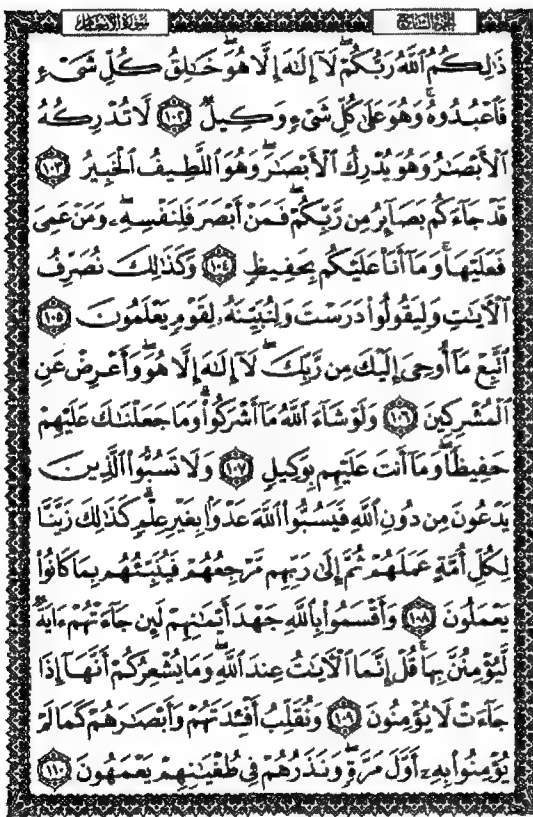 سورة الأنعام الجزء السابع
ذَٰلِكُمُ ٱللَّهُ رَبُّكُمْ ۖ لَآ إِلَٰهَ إِلَّا هُوَ ۖ خَٰلِقُ كُلِّ شَىْءٍ
فَٱعْبُدُوهُ ۚ وَهُوَ عَلَىٰ كُلِّ شَىْءٍ وَكِيلٌ ١٠٢ لَّا تُدْرِكُهُ
ٱلْأَبْصَٰرُ وَهُوَ يُدْرِكُ ٱلْأَبْصَٰرَ ۖ وَهُوَ ٱللَّطِيفُ ٱلْخَبِيرُ ١٠٣
قَدْ جَآءَكُم بَصَآئِرُ مِن رَّبِّكُمْ ۖ فَمَنْ أَبْصَرَ فَلِنَفْسِهِۦ ۖ وَمَنْ عَمِىَ
فَعَلَيْهَا ۚ وَمَآ أَنَا۠ عَلَيْكُم بِحَفِيظٍ ١٠٤ وَكَذَٰلِكَ نُصَرِّفُ
ٱلْءَايَٰتِ وَلِيَقُولُوا۟ دَرَسْتَ وَلِنُبَيِّنَهُۥ لِقَوْمٍ يَعْلَمُونَ ١٠٥
ٱتَّبِعْ مَآ أُوحِىَ إِلَيْكَ مِن رَّبِّكَ ۖ لَآ إِلَٰهَ إِلَّا هُوَ ۖ وَأَعْرِضْ عَنِ
ٱلْمُشْرِكِينَ ١٠٦ وَلَوْ شَآءَ ٱللَّهُ مَآ أَشْرَكُوا۟ ۗ وَمَا جَعَلْنَٰكَ عَلَيْهِمْ
حَفِيظًا ۖ وَمَآ أَنتَ عَلَيْهِم بِوَكِيلٍ ١٠٧ وَلَا تَسُبُّوا۟ ٱلَّذِينَ
يَدْعُونَ مِن دُونِ ٱللَّهِ فَيَسُبُّوا۟ ٱللَّهَ عَدْوًۢا بِغَيْرِ عِلْمٍ ۗ كَذَٰلِكَ زَيَّنَّا
لِكُلِّ أُمَّةٍ عَمَلَهُمْ ثُمَّ إِلَىٰ رَبِّهِم مَّرْجِعُهُمْ فَيُنَبِّئُهُم بِمَا كَانُوا۟
يَعْمَلُونَ ١٠٨ وَأَقْسَمُوا۟ بِٱللَّهِ جَهْدَ أَيْمَٰنِهِمْ لَئِن جَآءَتْهُمْ ءَايَةٌ
لَّيُؤْمِنُنَّ بِهَا ۚ قُلْ إِنَّمَا ٱلْءَايَٰتُ عِندَ ٱللَّهِ ۖ وَمَا يُشْعِرُكُمْ أَنَّهَآ إِذَا
جَآءَتْ لَا يُؤْمِنُونَ ١٠٩ وَنُقَلِّبُ أَفْـِٔدَتَهُمْ وَأَبْصَٰرَهُمْ كَمَا لَمْ
يُؤْمِنُوا۟ بِهِۦٓ أَوَّلَ مَرَّةٍ وَنَذَرُهُمْ فِى طُغْيَٰنِهِمْ يَعْمَهُونَ ١١٠